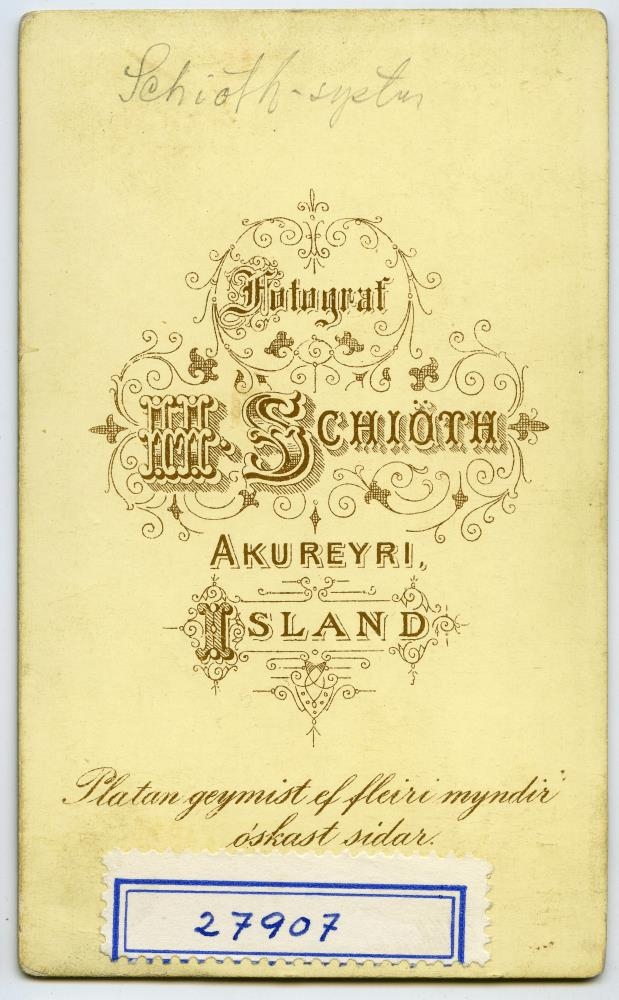 Schiöth-systur
Fotograf
H. SCHIÖTH
AKUREYRI,
ISLAND
Platan geymist ef fleiri myndir
óskast sidar.
27907